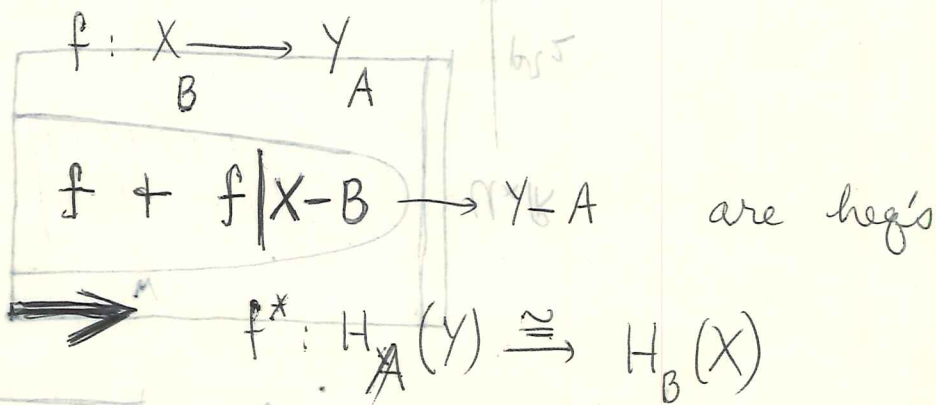 f : X ⟶ Y
B A
f + f|X-B ⟶ Y-A are heq's
⟹ f* : H_A(Y) ≅⟶ H_B(X)